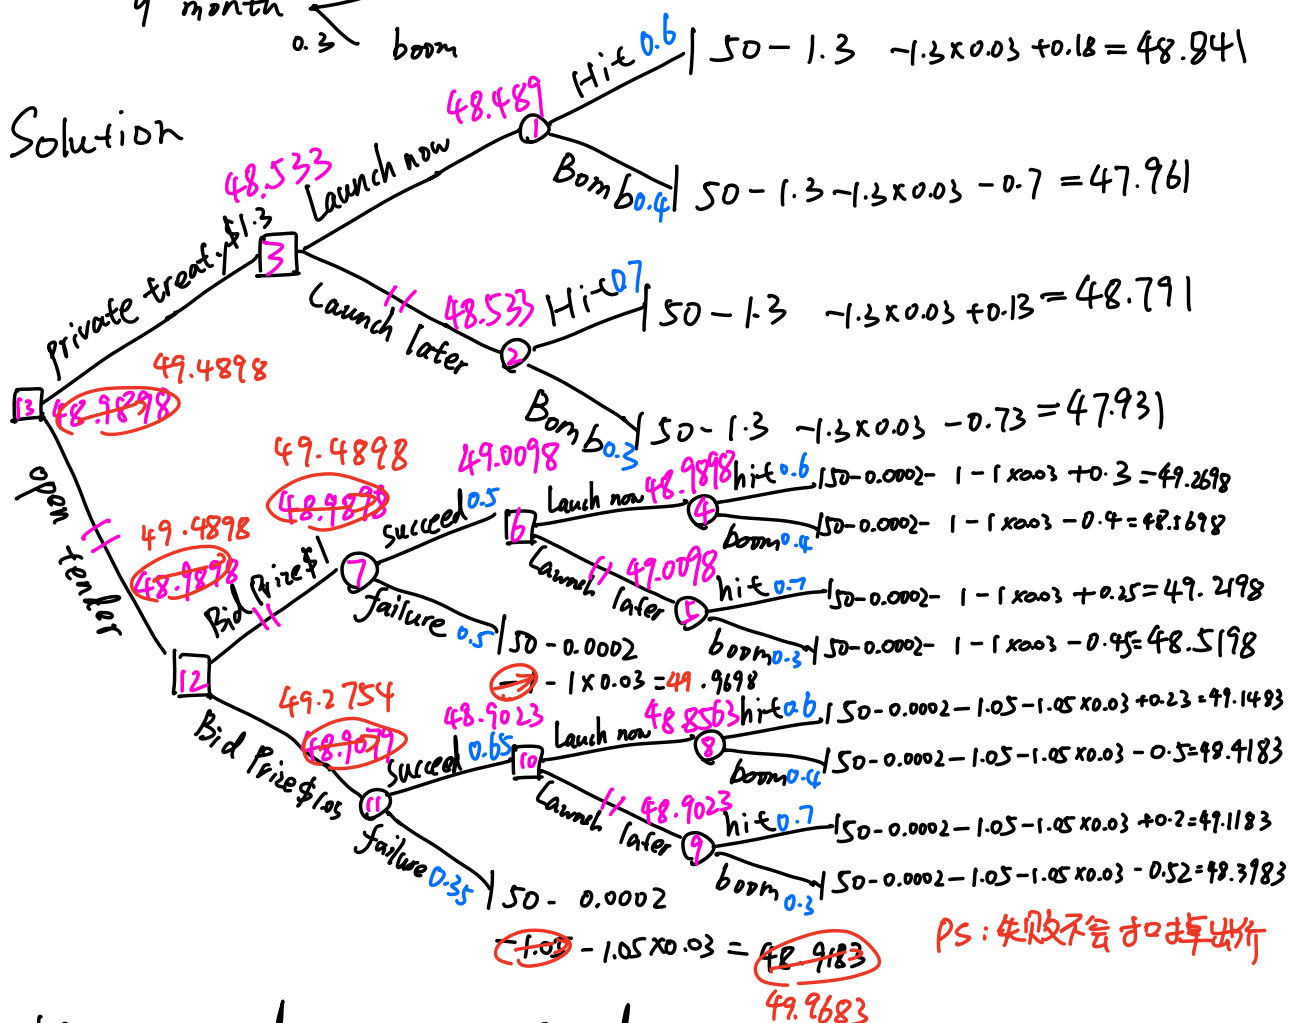 9 month
0.3 boom
Solution
48.533
private treaty $1.3
3
Launch now
48.489
1
Hit 0.6
50 - 1.3 - 1.3 x 0.03 + 0.18 = 48.841
Bomb 0.4
50 - 1.3 - 1.3 x 0.03 - 0.7 = 47.961
Launch later
48.533
2
Hit 0.7
50 - 1.3 - 1.3 x 0.03 + 0.13 = 48.791
Bomb 0.3
50 - 1.3 - 1.3 x 0.03 - 0.73 = 47.931
49.4898
13
48.9898
open tender
49.4898
48.9898
12
Bid Prize $1
49.4898
48.9898
7
succeed 0.5
49.0098
6
Lauch now
48.9898
4
hit 0.6
50 - 0.0002 - 1 - 1 x 0.03 + 0.3 = 49.2698
boom 0.4
50 - 0.0002 - 1 - 1 x 0.03 - 0.4 = 48.5698
Launch later
49.0098
5
hit 0.7
50 - 0.0002 - 1 - 1 x 0.03 + 0.25 = 49.2198
boom 0.3
50 - 0.0002 - 1 - 1 x 0.03 - 0.45 = 48.5198
failure 0.5
50 - 0.0002
- 1 x 0.03 = 49.9698
Bid Prize $1.05
49.2754
48.9079
11
succeed 0.65
48.9023
10
Lauch now
48.8563
8
hit 0.6
50 - 0.0002 - 1.05 - 1.05 x 0.03 + 0.23 = 49.1483
boom 0.4
50 - 0.0002 - 1.05 - 1.05 x 0.03 - 0.5 = 48.4183
Launch later
48.9023
9
hit 0.7
50 - 0.0002 - 1.05 - 1.05 x 0.03 + 0.2 = 49.1183
boom 0.3
50 - 0.0002 - 1.05 - 1.05 x 0.03 - 0.52 = 48.3983
failure 0.35
50 - 0.0002
- 1.05 - 1.05 x 0.03 = 48.9183
49.9683
PS: 失败不会扣掉出价